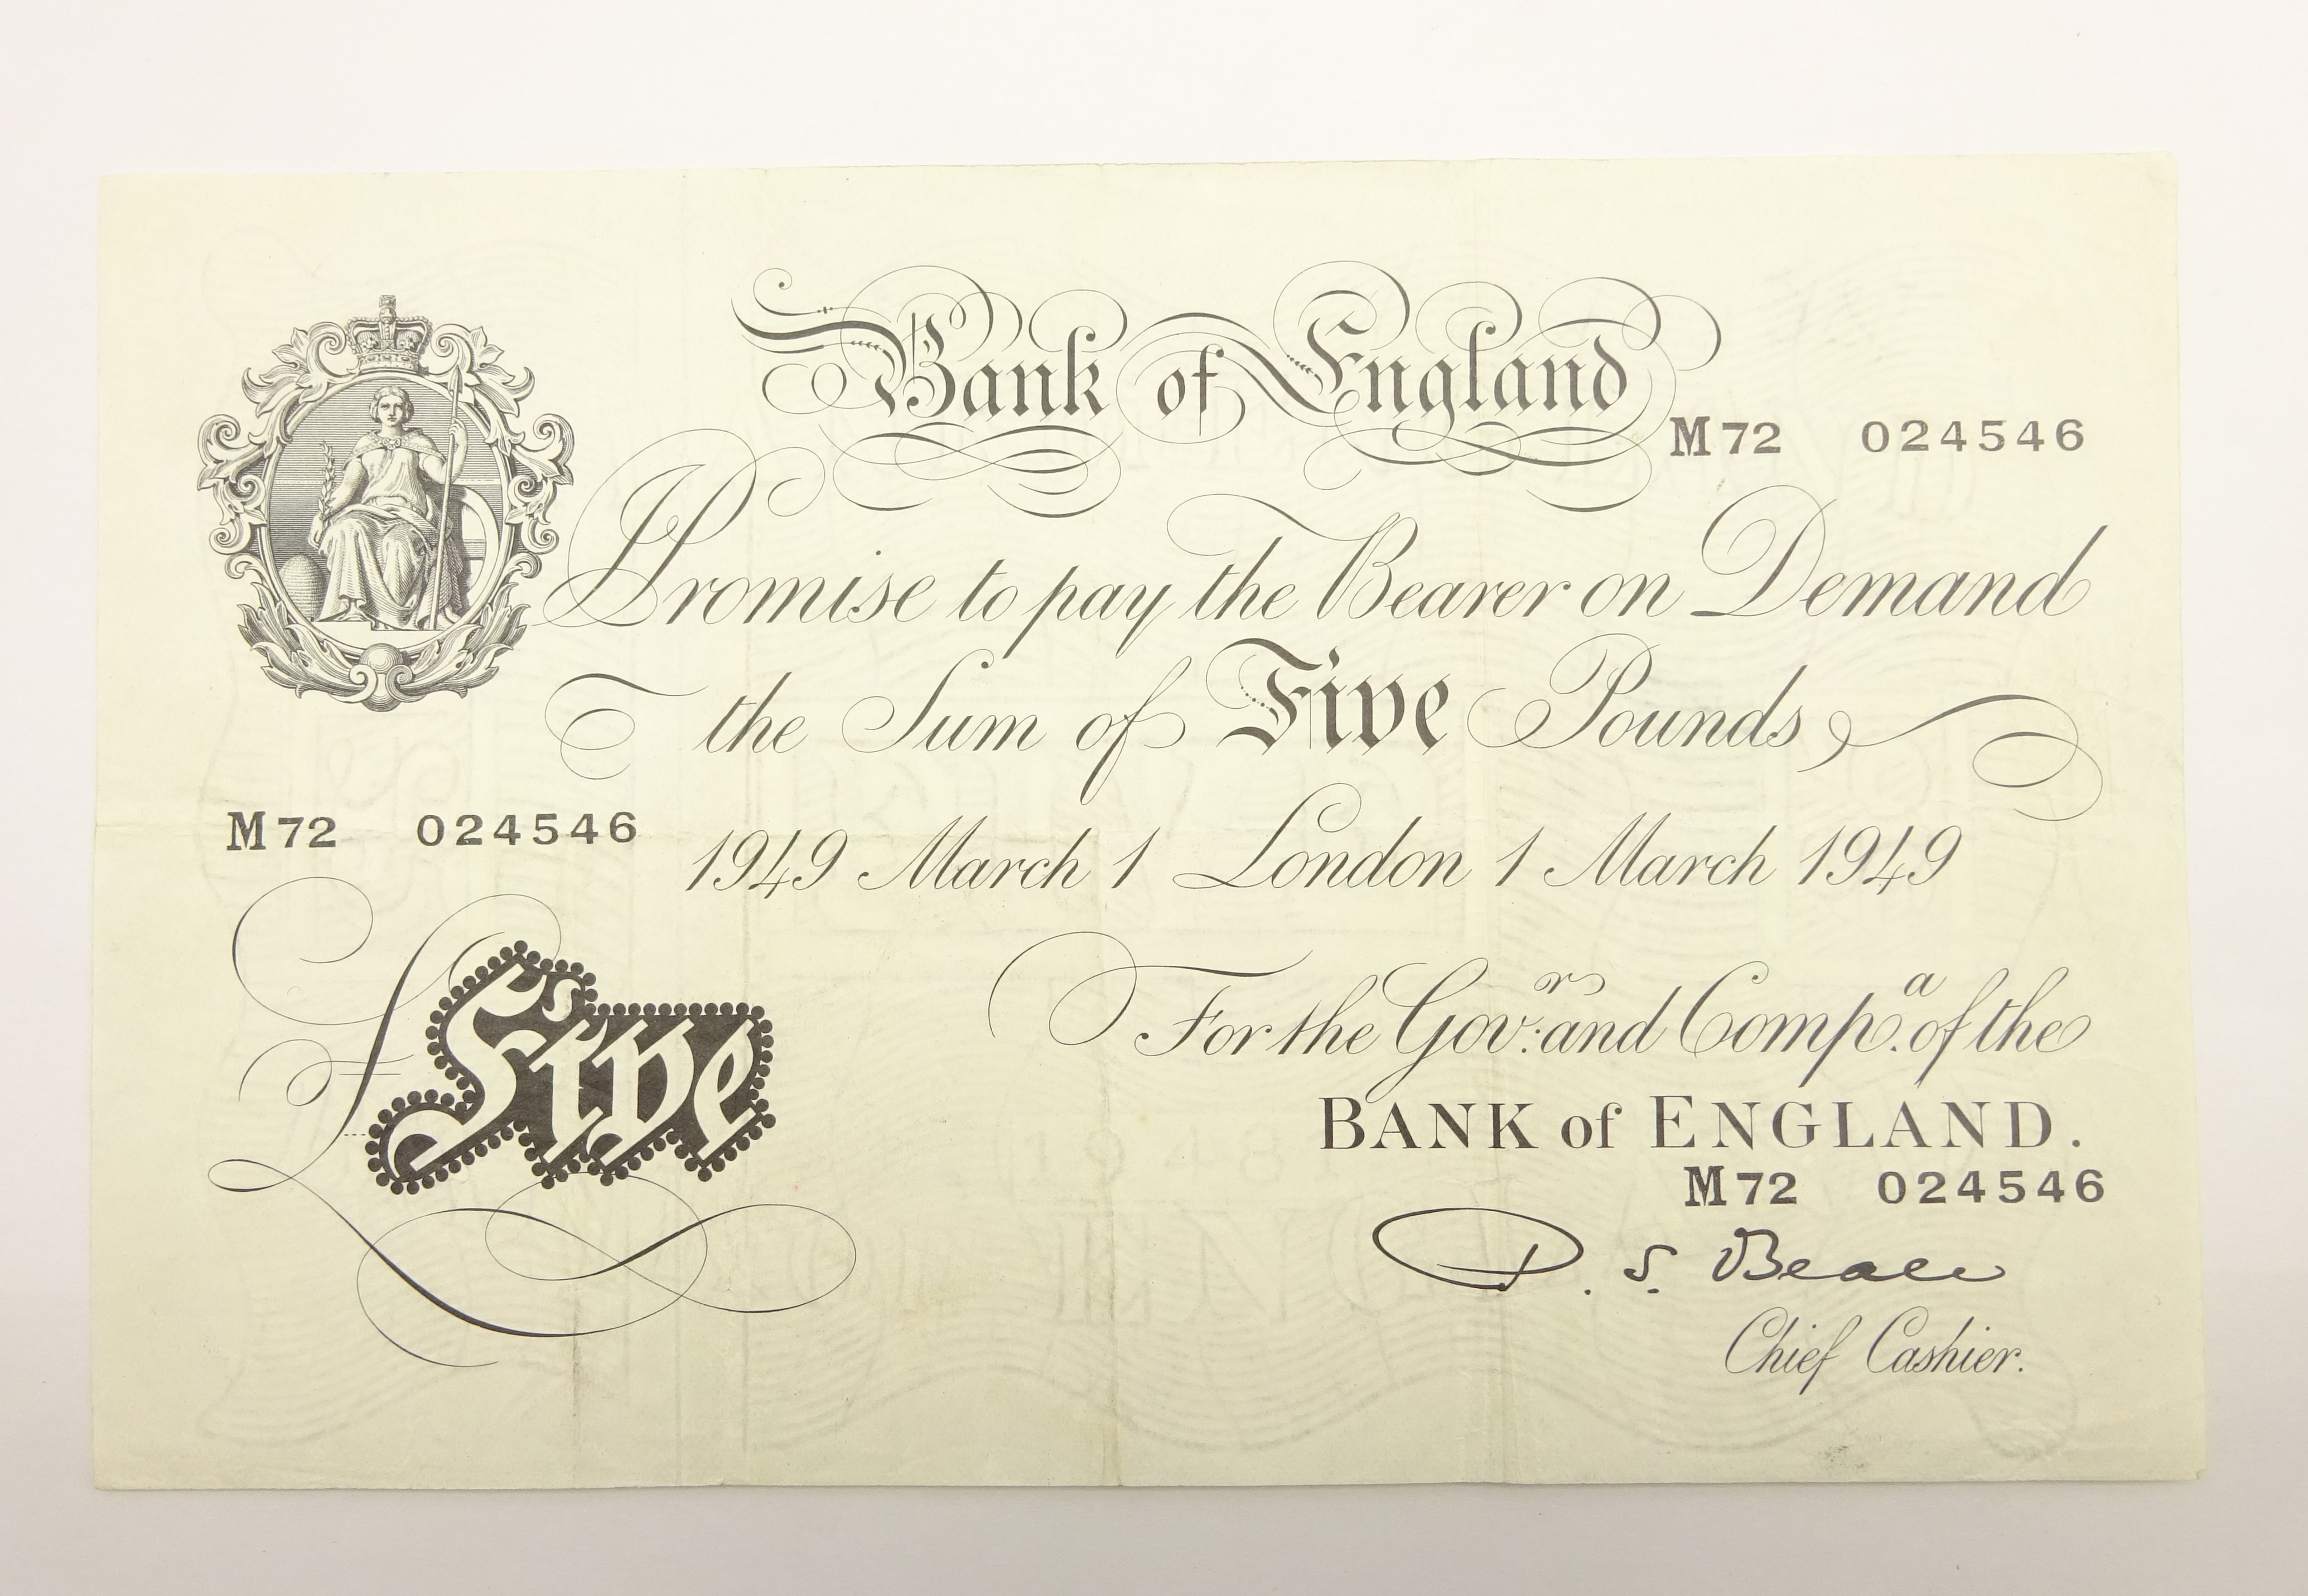 Bank of England
M72 024546
I Promise to pay the Bearer on Demand
the Sum of Five Pounds
M72 024546
1949 March 1 London 1 March 1949
For the Govr. and Compa. of the
£ Five
BANK of ENGLAND.
M72 024546
P. S. Beale
Chief Cashier.